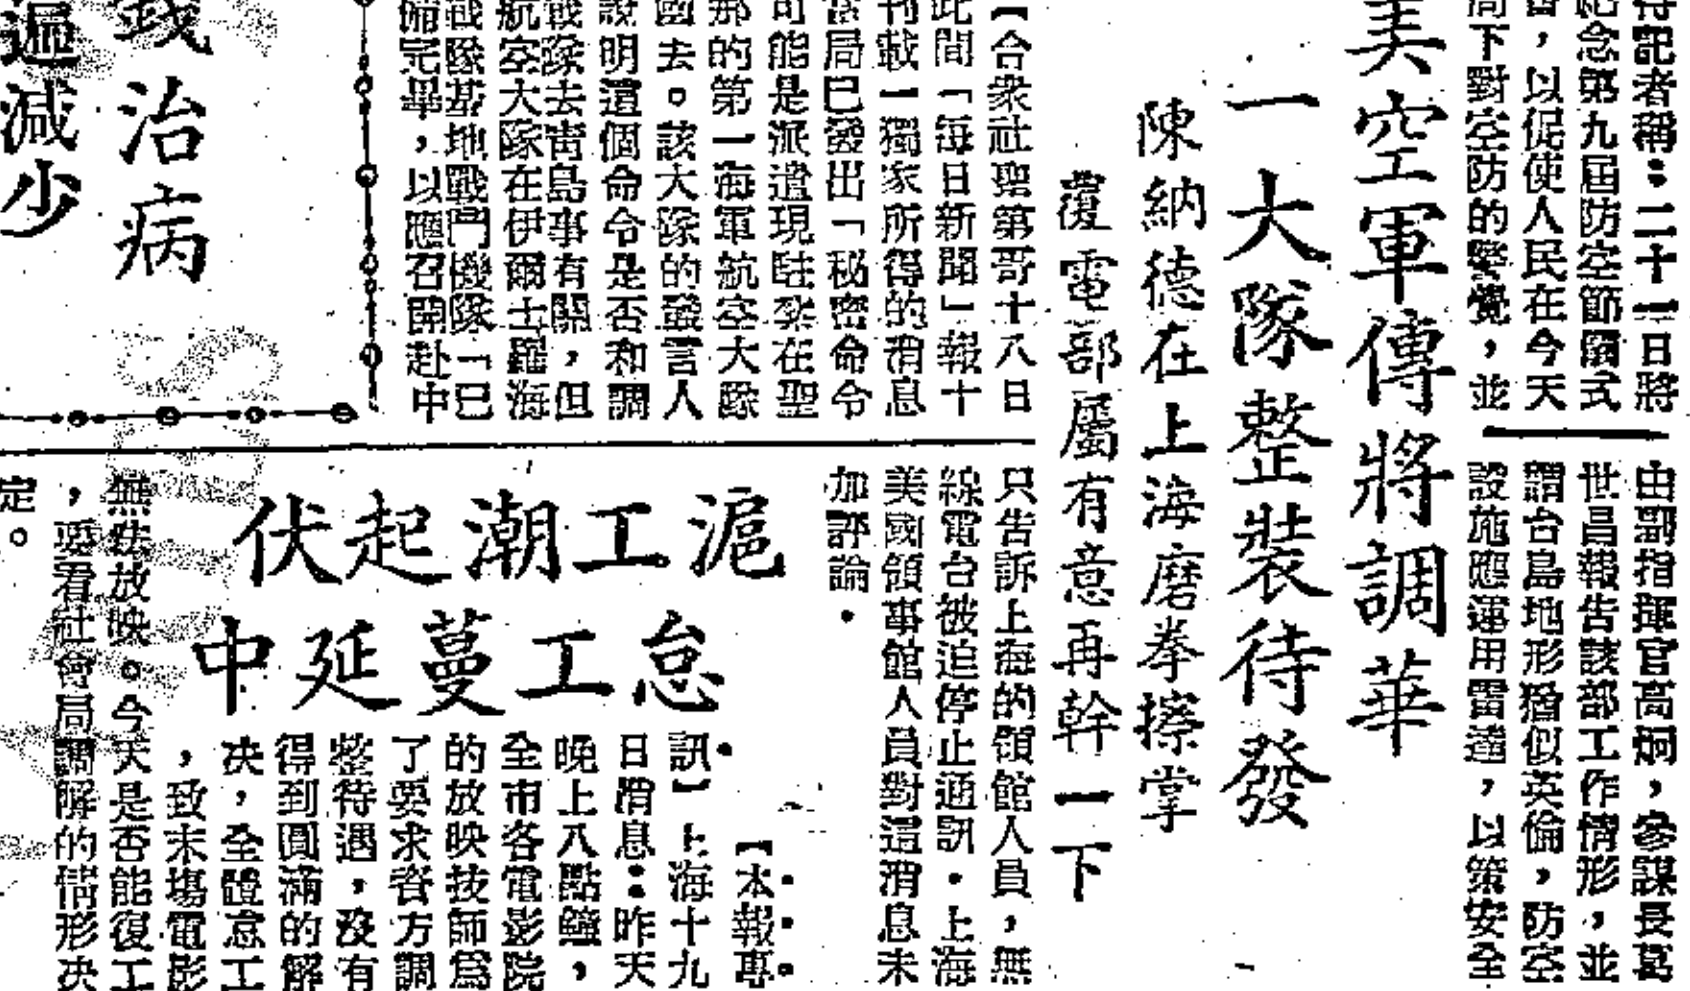 待記者稱：二十一日將
紀念第九屆防空節儀式
會，以促使人民在今天
局下對空防的警覺，並
由副指揮官高炯，參謀長葛
世昌報告該部工作情形，並
謂台島地形猶似英倫，防空
設施應運用雷達，以策安全
美空軍傳將調華
一大隊整裝待發
陳納德在上海磨拳擦掌
覆電部屬有意再幹一下
【合衆社聖第哥十八日
此間「每日新聞」報十
刊載一獨家所得的消息
當局已發出「秘密命令
可能是派遣現駐紮在聖
那的第一海軍航空大隊
國去。該大隊的發言人
說明這個命令是否和調
戰隊去青島事有關，但
航空大隊在伊爾士羅海
戰隊基地戰鬥機隊「已
備完畢，以應召開赴中
只告訴上海的領館人員，無
線電台被迫停止通訊．上海
美國領事館人員對這消息未
加評論．
滬工潮起伏
怠工蔓延中
【本報專
訊】上海十九
日消息：昨天
晚上八點鐘，
全市各電影院
的放映技師爲
了要求資方調
整待遇，沒有
得到圓滿的解
决，全體怠工
，致末場電影
無法放映。今天是否能復工
，要看社會局調解的情形决
定。
錢治病
遍減少